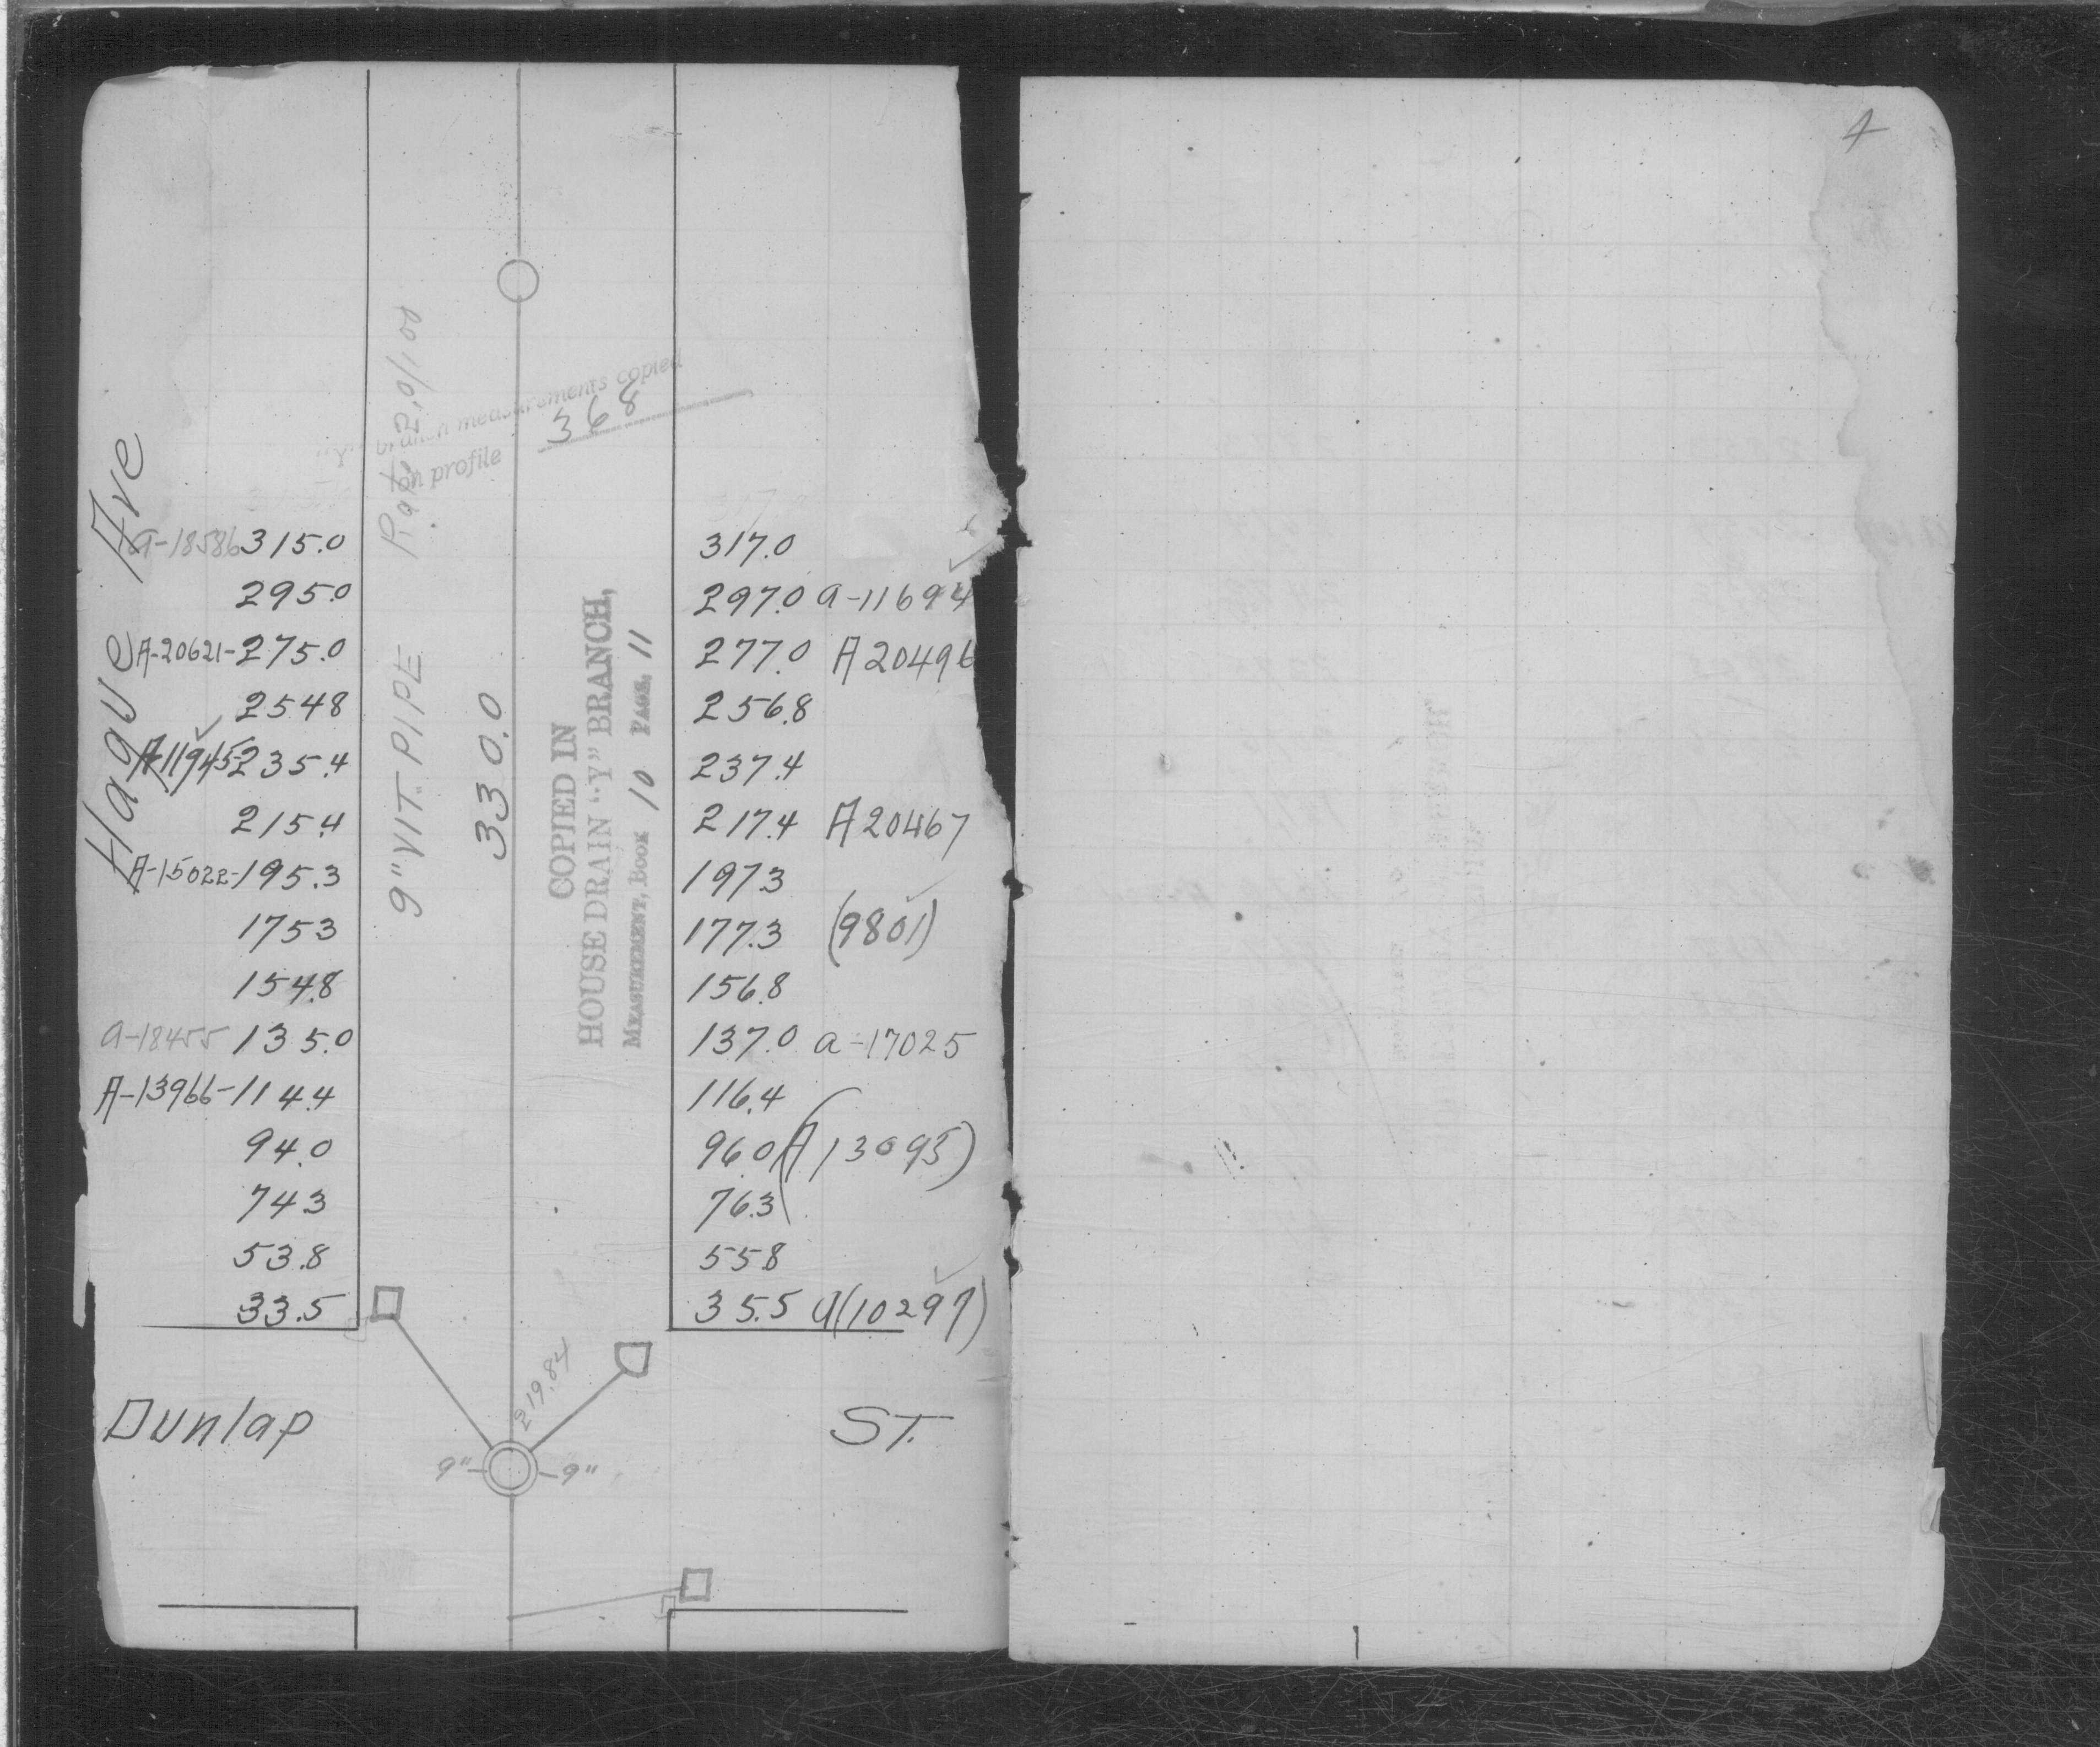 4
"Y" branch measurements copied
on profile 368
Rate 2.0/100
Hague Ave
9" VIT. PIPE
330.0
COPIED IN
HOUSE DRAIN "Y" BRANCH,
MEASUREMENT, BOOK 10 PAGE, 11
a-18586 315.0
295.0
A-20621-275.0
254.8
A-11945 235.4
215.4
A-15022-195.3
175.3
154.8
a-18455 135.0
A-13966-114.4
94.0
74.3
53.8
33.5
317.0
297.0 a-11694
277.0 A 20496
256.8
237.4
217.4 A 20467
197.3
177.3 (9801)
156.8
137.0 a-17025
116.4
96.0 (A 13095)
76.3
55.8
35.5 a(10297)
219.84
Dunlap ST.
9" 9"